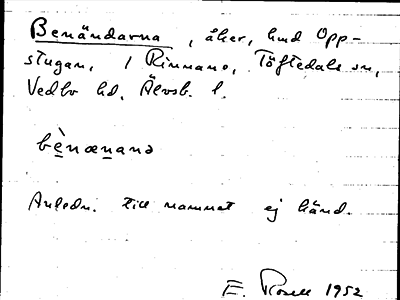 Benändarna, åker, hmd Opp-
stugan, i Rinnane, Töftedals sn,
Vedbo hd, Älvsb. l.
bè̱nænanə
Anledn. till namnet ej känd.
E. Rosell 1952